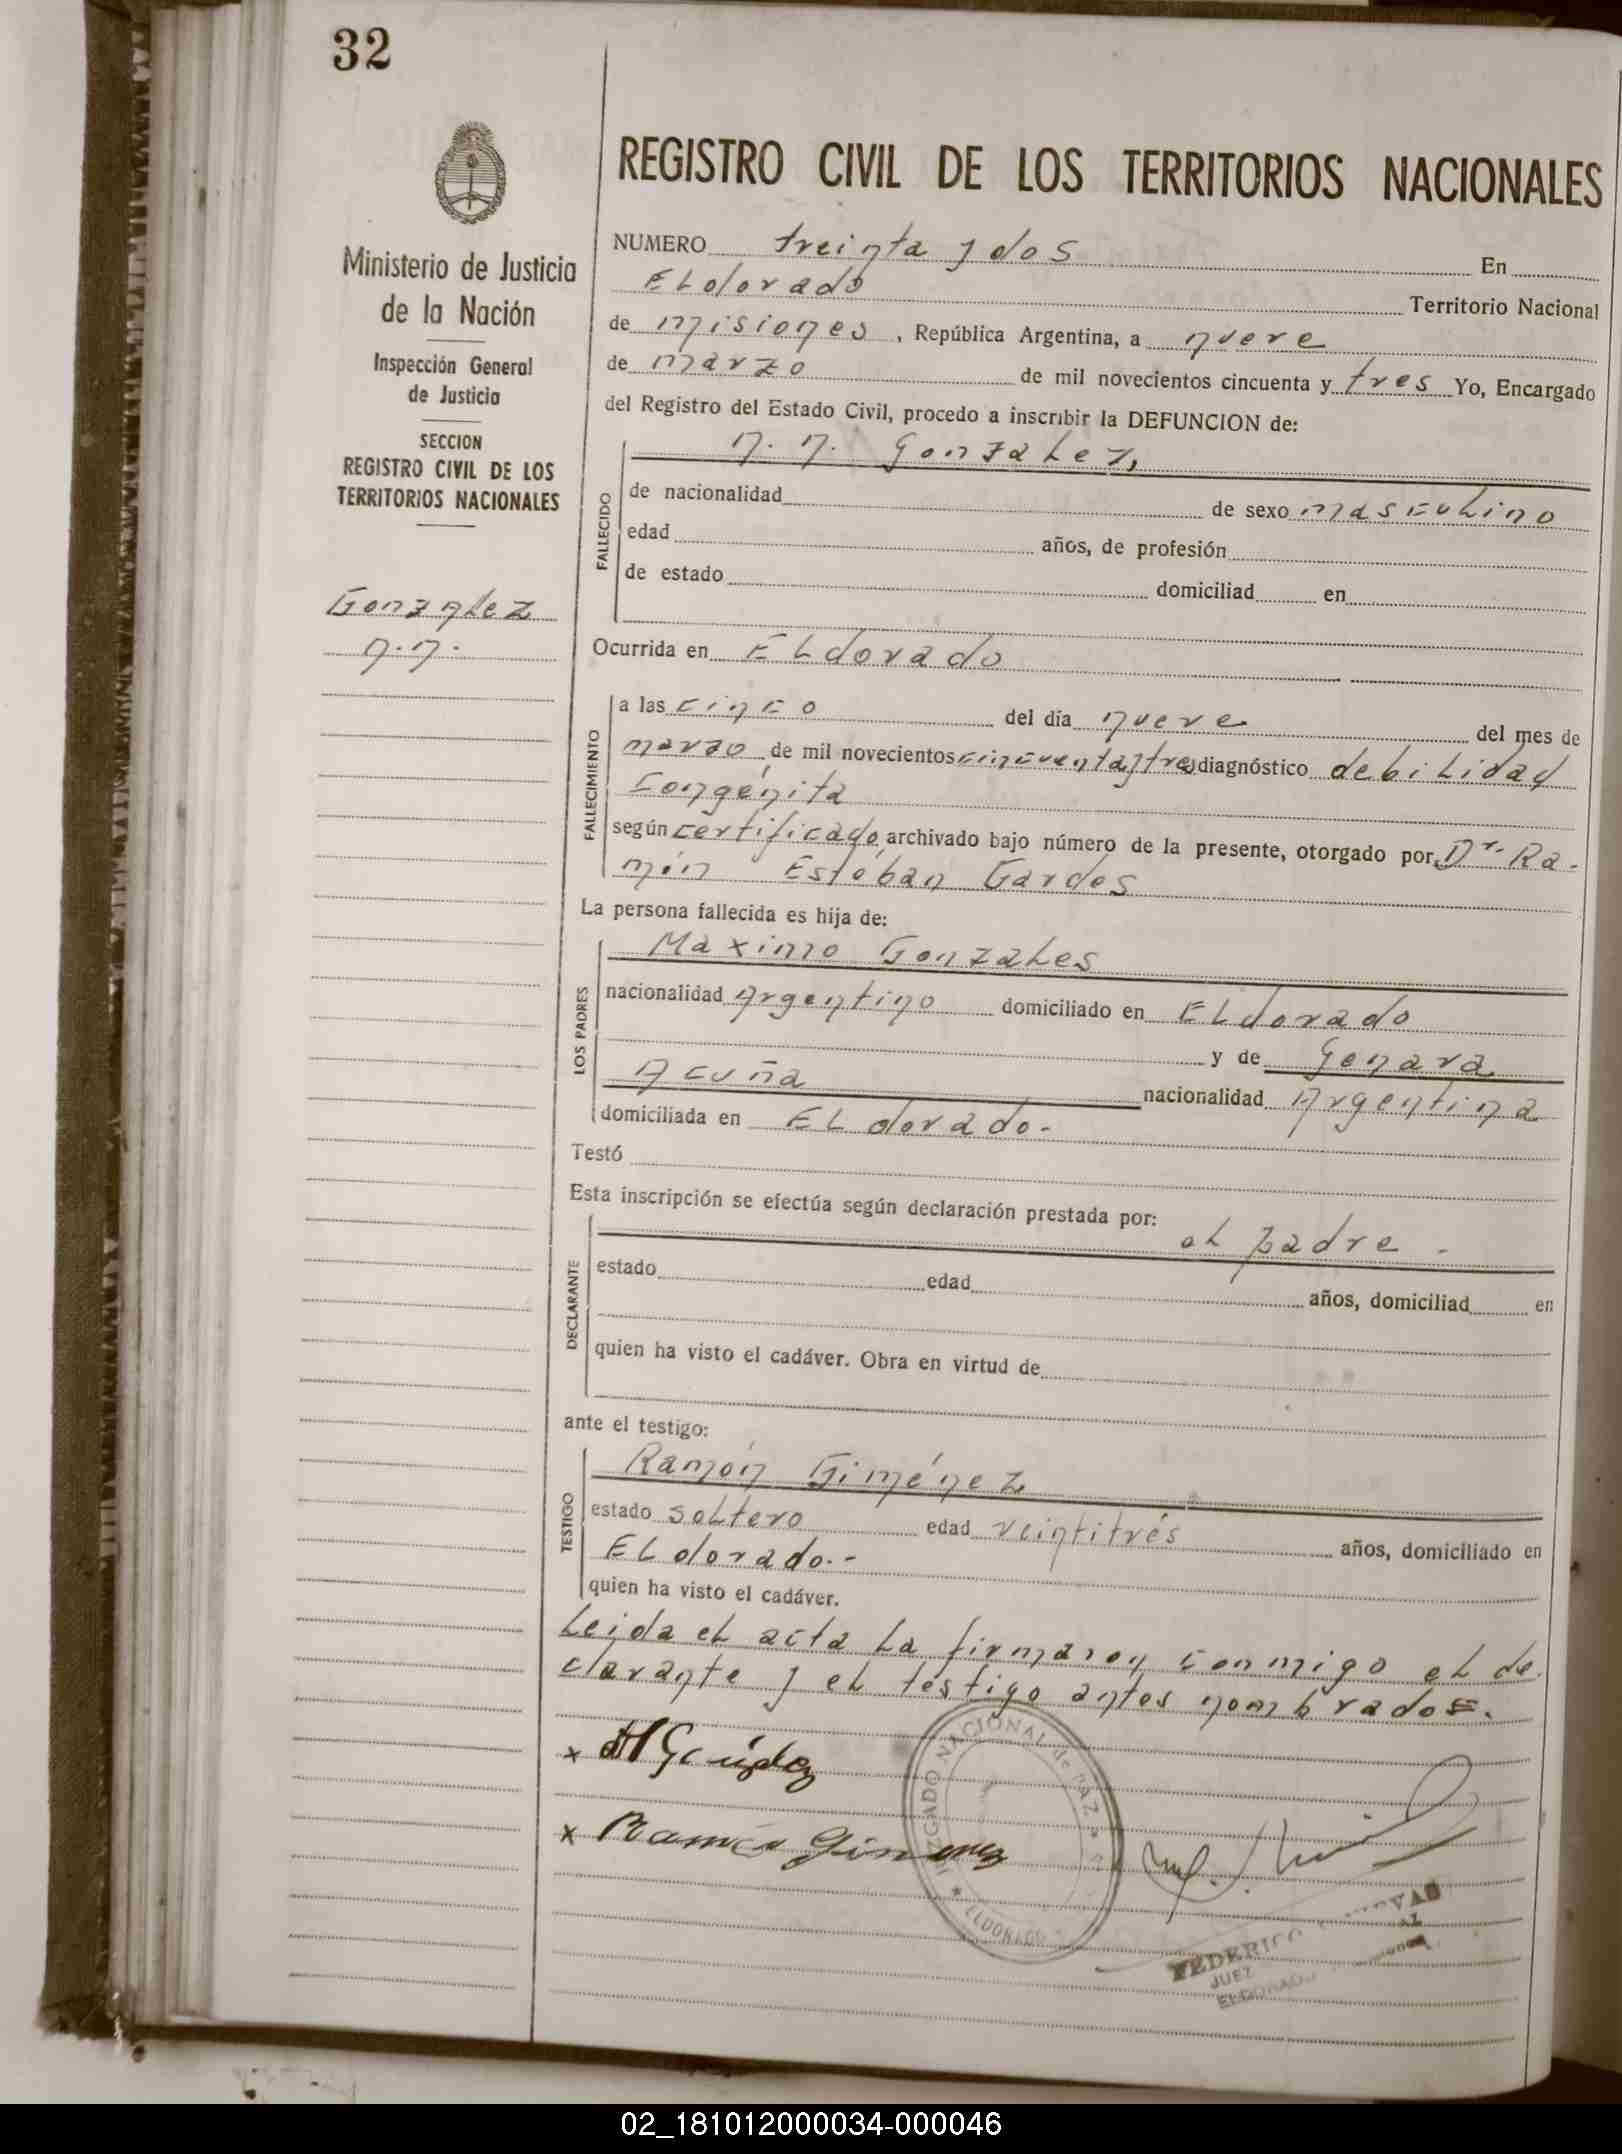 32
REGISTRO CIVIL DE LOS TERRITORIOS NACIONALES
Ministerio de Justicia
de la Nación
Inspección General
de Justicia
SECCION
REGISTRO CIVIL DE LOS
TERRITORIOS NACIONALES
Gonzalez
N.N.
NUMERO treinta y dos En
ELdorado Territorio Nacional
de misiones, República Argentina, a nueve
de marzo de mil novecientos cincuenta y tres Yo, Encargado
del Registro del Estado Civil, procedo a inscribir la DEFUNCION de:
N. N. Gonzalez,
FALLECIDO
de nacionalidad de sexo masculino
edad años, de profesión
de estado domiciliad en
Ocurrida en ELdorado
FALLECIMIENTO
a las cinco del día nueve del mes de
marzo de mil novecientos cincuenta y tres diagnóstico debilidad
congénita
según certificado archivado bajo número de la presente, otorgado por Dr. Ra-
món Estéban Gardes
La persona fallecida es hija de:
LOS PADRES
Maximo Gonzales
nacionalidad Argentino domiciliado en ELdorado
y de Genara
Acuña nacionalidad Argentina
domiciliada en ELdorado.
Testó
Esta inscripción se efectúa según declaración prestada por:
el padre.
DECLARANTE
estado edad años, domiciliad en
quien ha visto el cadáver. Obra en virtud de
ante el testigo:
TESTIGO
Ramón Giménez
estado soltero edad veintitrés años, domiciliado en
ELdorado.-
quien ha visto el cadáver.
Leida el acta la firmaron conmigo el de
clarante y el testigo antes nombrados.
x
x Ramón Gimenez
JUZGADO NACIONAL de PAZ
ELDORADO
FEDERICO
JUEZ
ELDORADO
02_181012000034-000046